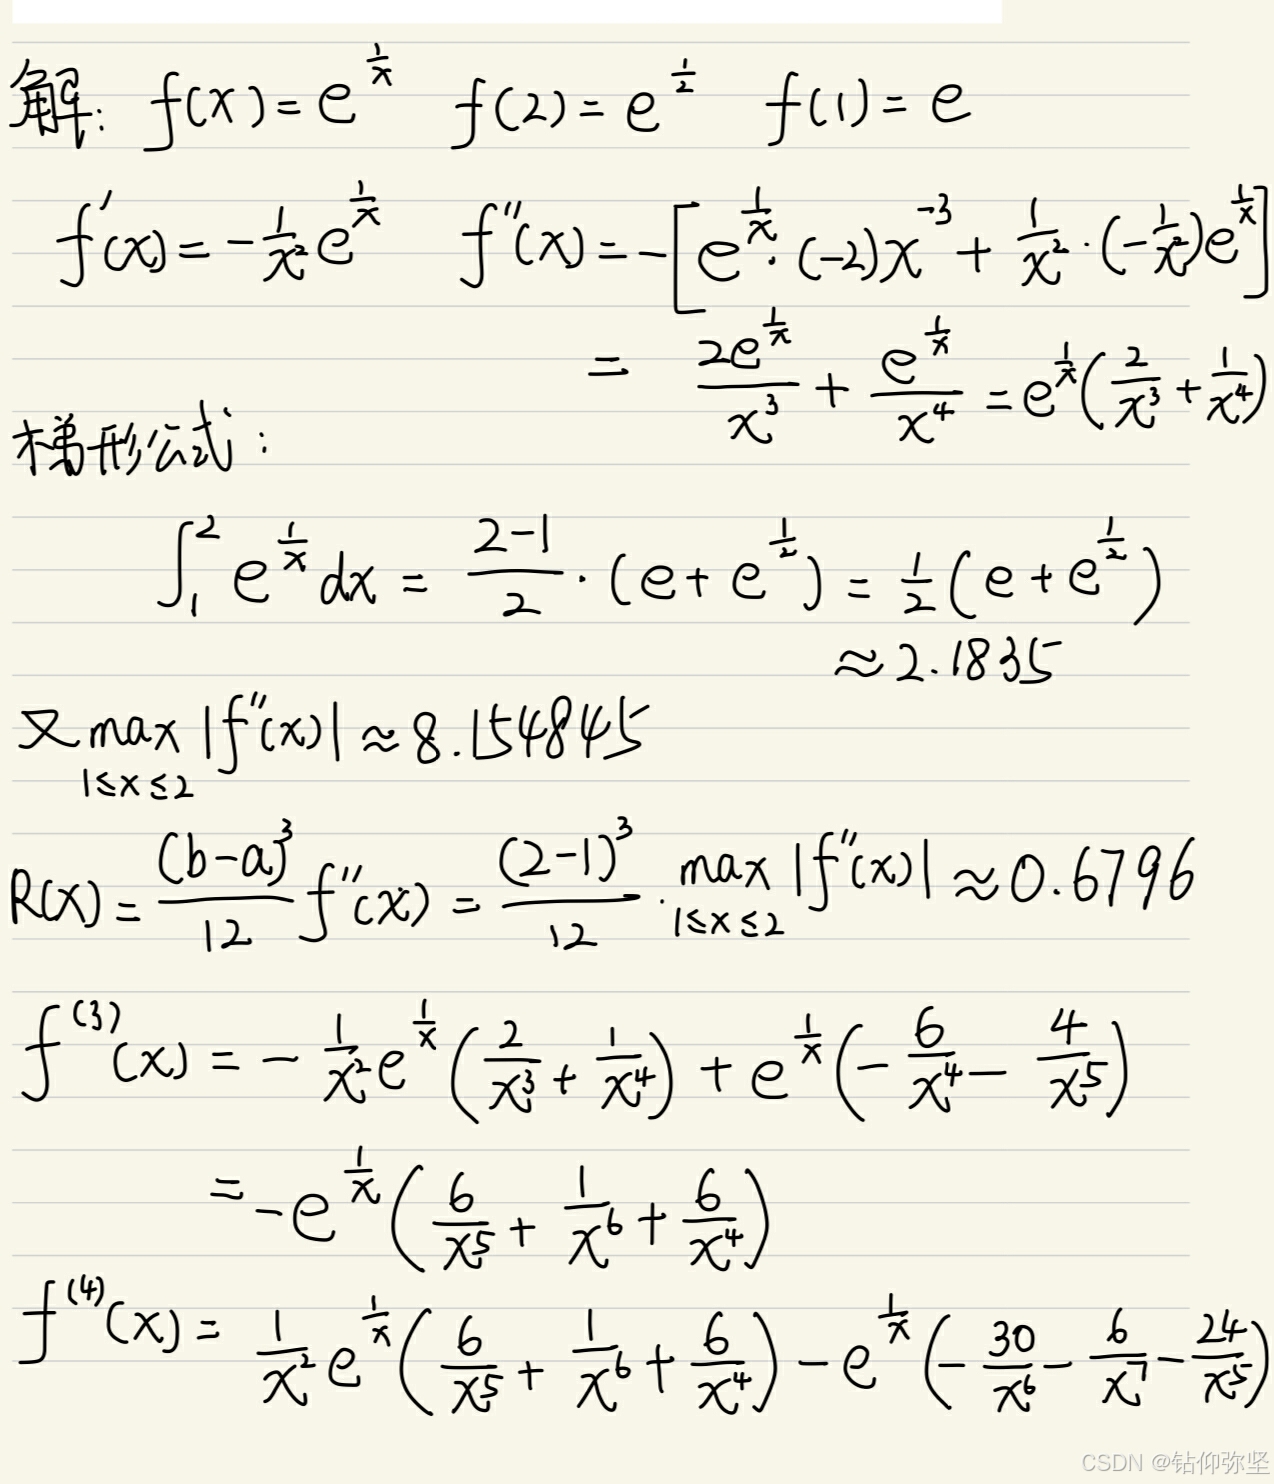 解: f(x) = e^{\frac{1}{x}} f(2) = e^{\frac{1}{2}} f(1) = e
f'(x) = -\frac{1}{x^2} e^{\frac{1}{x}} f''(x) = -[e^{\frac{1}{x}} · (-2)x^{-3} + \frac{1}{x^2} · (-\frac{1}{x^2}) e^{\frac{1}{x}}]
= \frac{2e^{\frac{1}{x}}}{x^3} + \frac{e^{\frac{1}{x}}}{x^4} = e^{\frac{1}{x}} (\frac{2}{x^3} + \frac{1}{x^4})
梯形公式:
\int_1^2 e^{\frac{1}{x}} dx = \frac{2-1}{2} · (e + e^{\frac{1}{2}}) = \frac{1}{2} (e + e^{\frac{1}{2}})
≈ 2.1835
又 max_{1≤x≤2} |f''(x)| ≈ 8.154845
R(x) = \frac{(b-a)^3}{12} f''(x) = \frac{(2-1)^3}{12} · max_{1≤x≤2} |f''(x)| ≈ 0.6796
f^{(3)}(x) = -\frac{1}{x^2} e^{\frac{1}{x}} (\frac{2}{x^3} + \frac{1}{x^4}) + e^{\frac{1}{x}} (-\frac{6}{x^4} - \frac{4}{x^5})
= -e^{\frac{1}{x}} (\frac{6}{x^5} + \frac{1}{x^6} + \frac{6}{x^4})
f^{(4)}(x) = \frac{1}{x^2} e^{\frac{1}{x}} (\frac{6}{x^5} + \frac{1}{x^6} + \frac{6}{x^4}) - e^{\frac{1}{x}} (-\frac{30}{x^6} - \frac{6}{x^7} - \frac{24}{x^5})
CSDN @钻仰弥坚